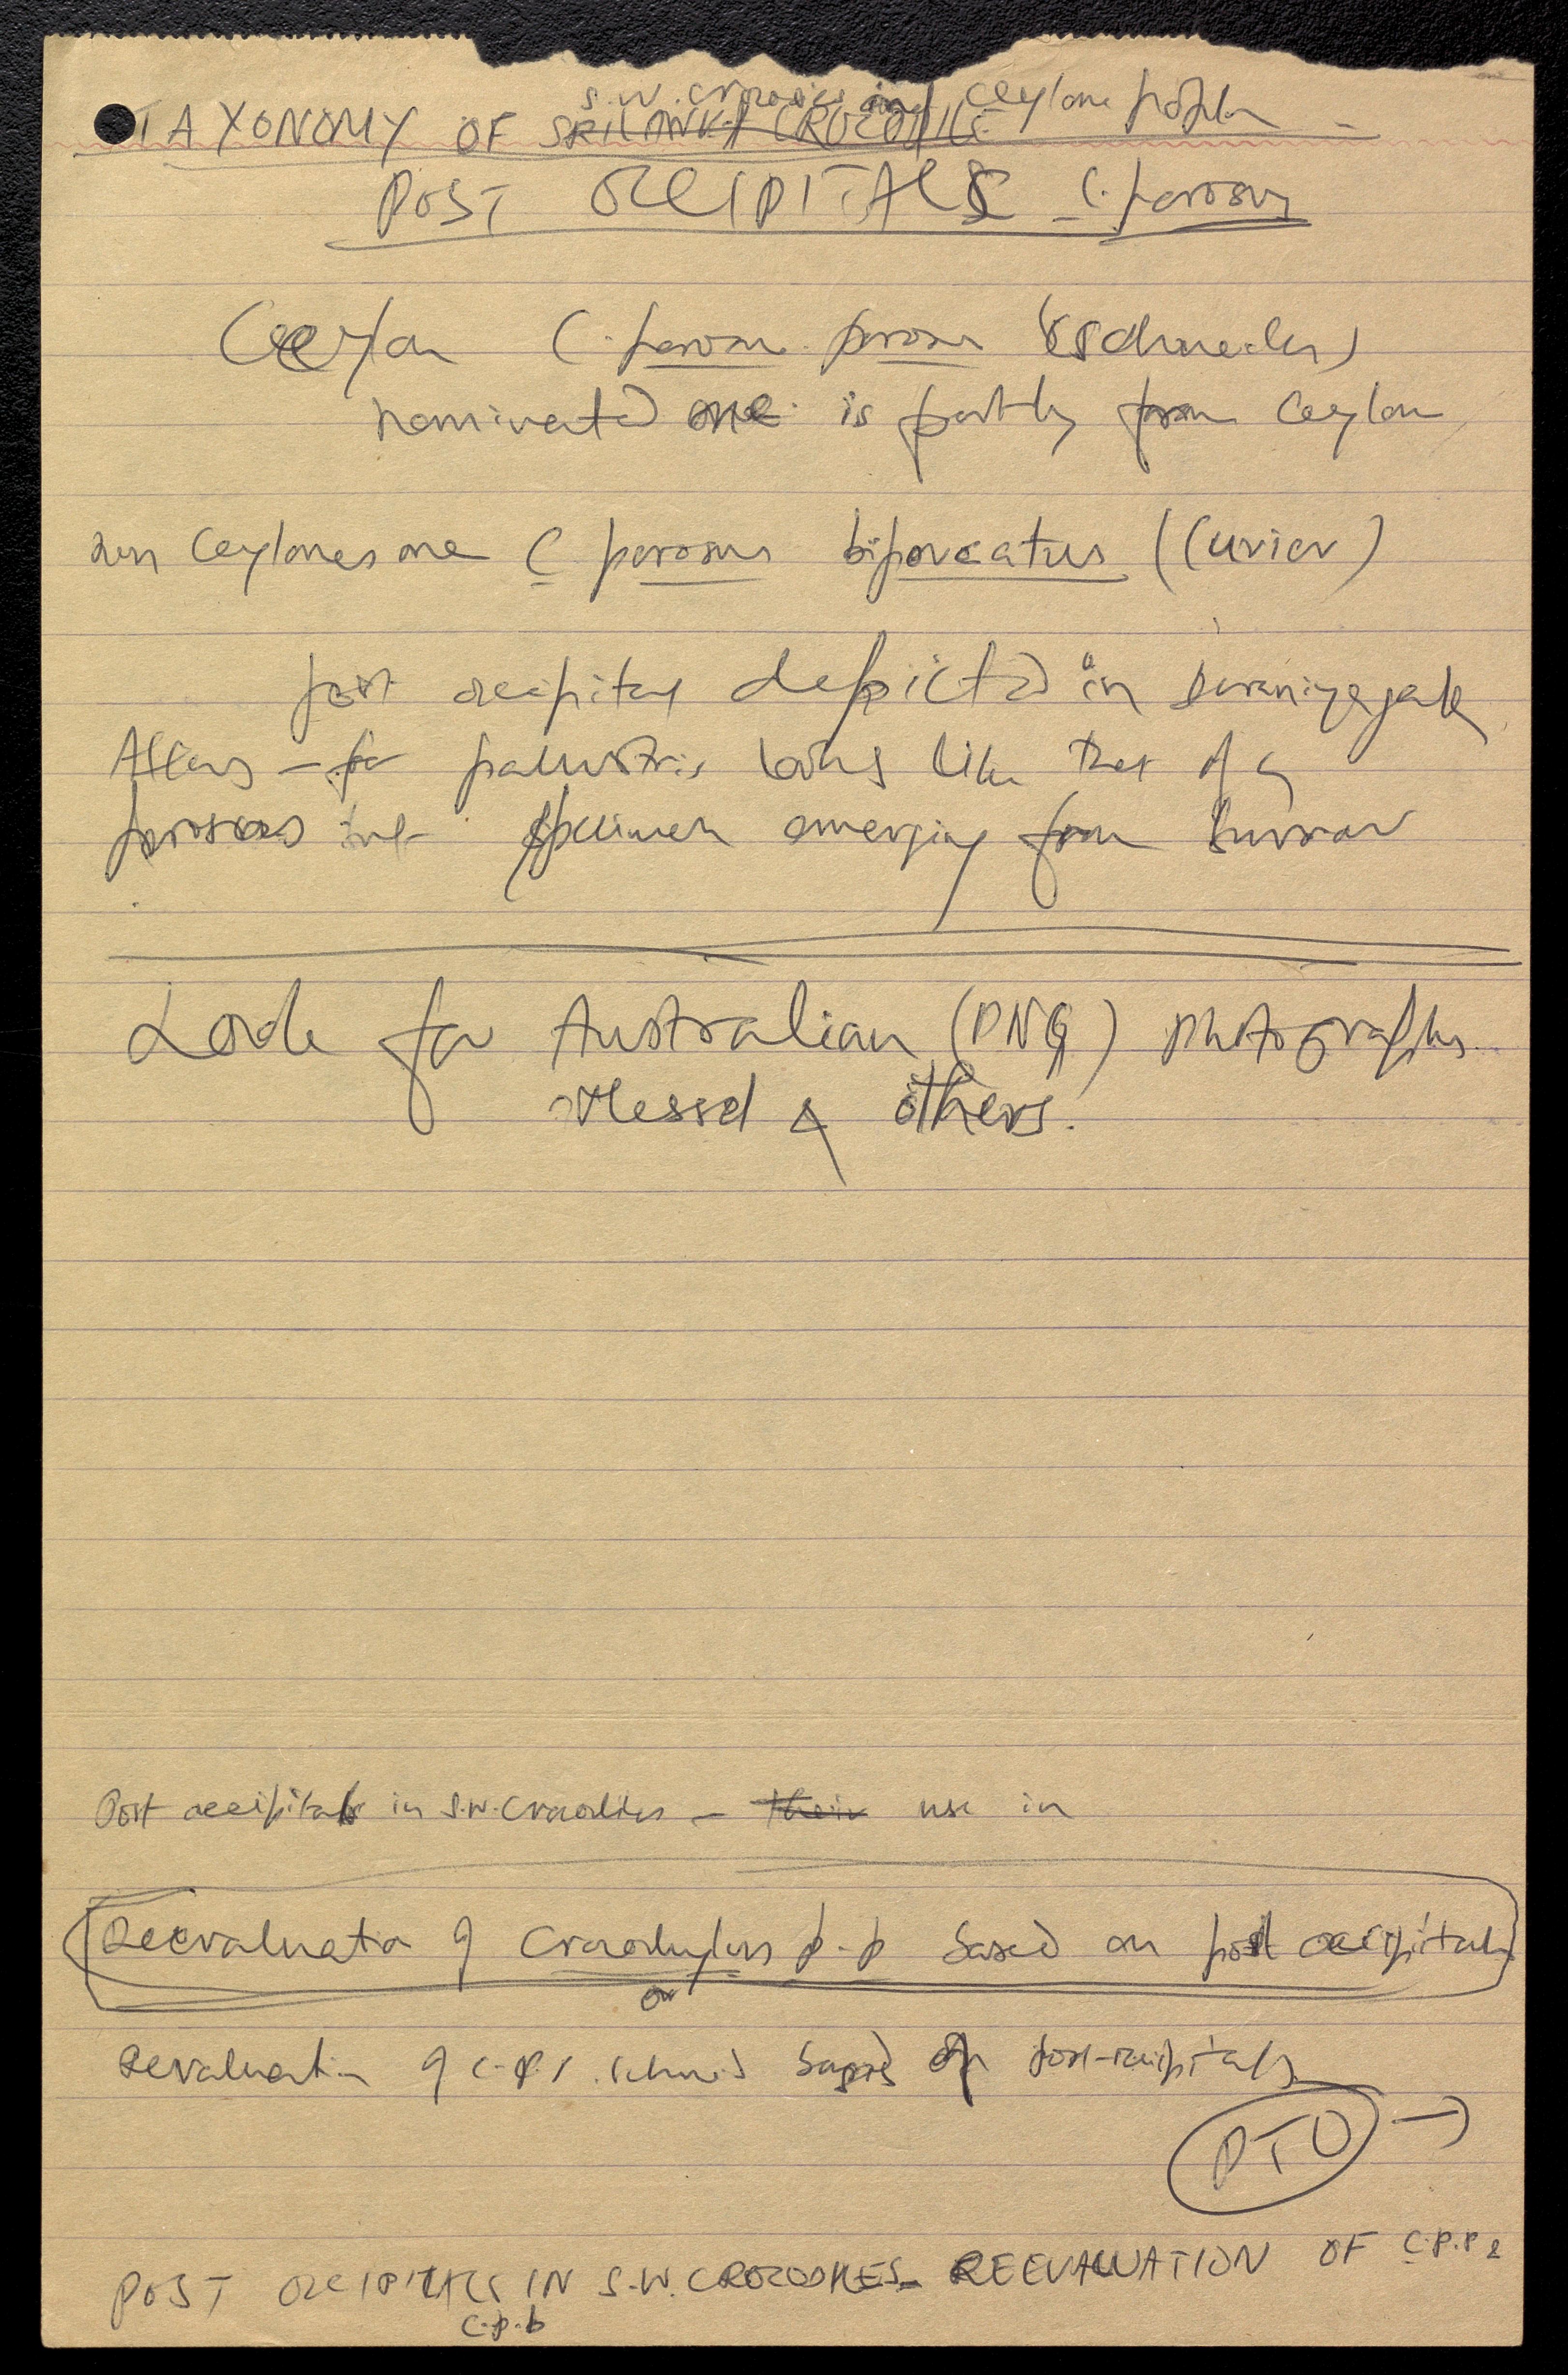 S.W. Crocodiles and Ceylone popln –
TAXONOMY OF SRI LANKA CROCODILE
POST OCCIPITALS C. porosus
Ceylon C. porosus porosus (Schneider)
nominated one is partly from Ceylon
non Ceylonese one C porosus biporcatus (Cuvier)
post occipitals depicted in Deraniyagala
Atlas – for palustris looks like that of a
porosus specimen emerging from burrow
Look for Australian (PNG) photographs
Messel & others.
Post occipitals in S.W. Crocodiles – their use in
Reevaluation of Crocodylus p. p based on post occipitals
or
Revaluation of C. p. based on post-occipitals
PTO →
POST OCCIPITALS IN S.W. CROCODILES – REEVALUATION OF C.P.P &
C.p.b